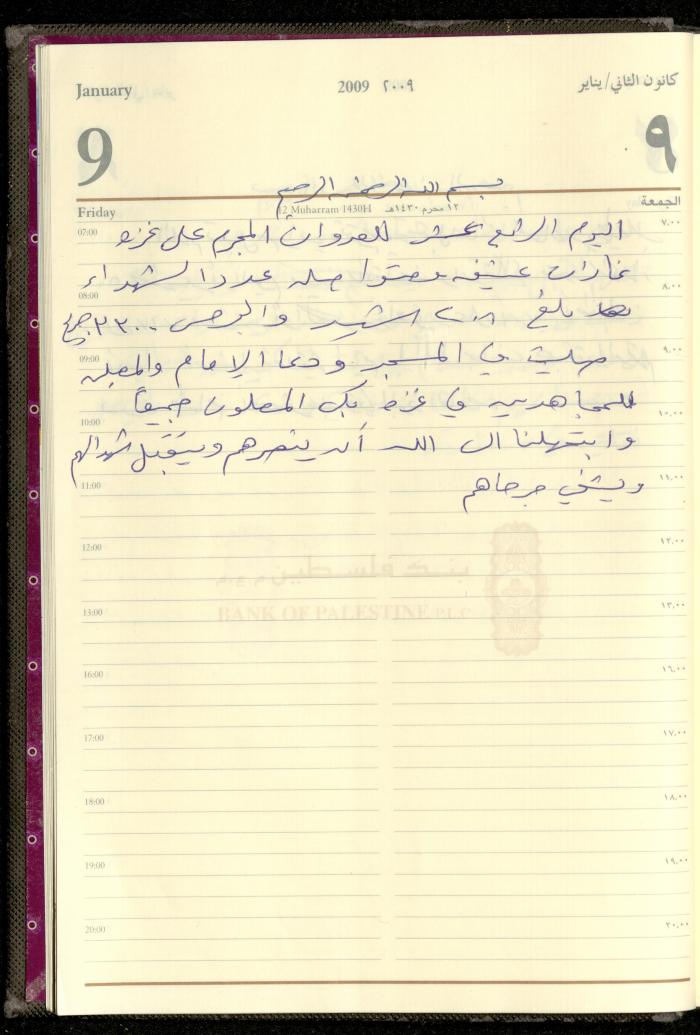 January
2009 ٢٠٠٩
كانون الثاني/يناير
9
٩
بسم الله الرحمن الرحيم
Friday
12 Muharram 1430H ١٢ محرم ١٤٣٠هـ
الجمعة
07:00 اليوم الرابع عشر للعدوان المجرم على غزة ٧,٠٠
غارات عنيفة عدد الشهداء
08:00 ٨,٠٠
بلغ شهيد والجرحى ٣٣٠٠ جريح
09:00 صليت في المسجد ودعا الامام والمصلين ٩,٠٠
للمجاهدين في غزة المصلون جميعاً
10:00 ١٠,٠٠
وابتهلنا الى الله أن ينصرهم ويتقبل شهدائهم
11:00 ١١,٠٠
ويشفي جرحاهم
12:00 ١٢,٠٠
بنك فلسطين م.ع.م
BANK OF PALESTINE P.L.C
13:00 ١٣,٠٠
16:00 ١٦,٠٠
17:00 ١٧,٠٠
18:00 ١٨,٠٠
19:00 ١٩,٠٠
20:00 ٢٠,٠٠